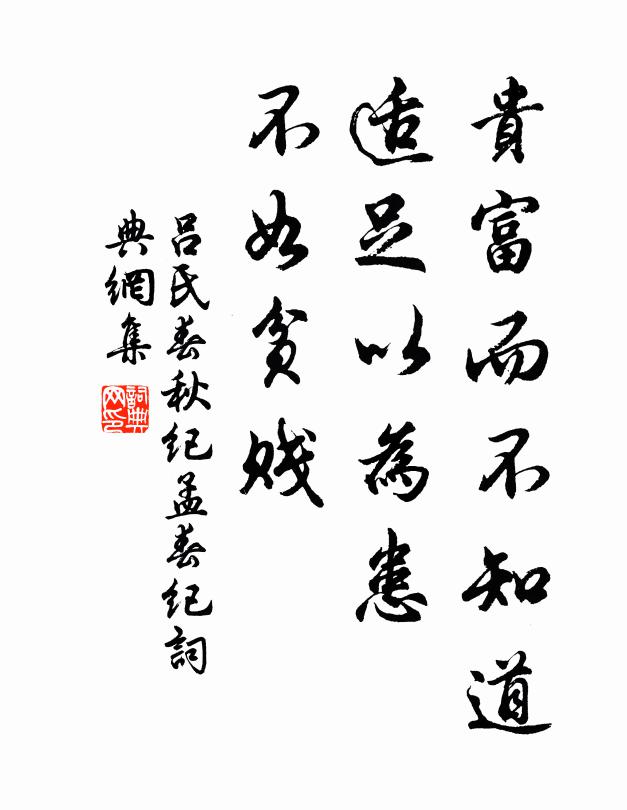 貴富而不知道
适足以為患
不如貧賤
呂氏春秋紀孟春紀詞
典網集
詞典网印